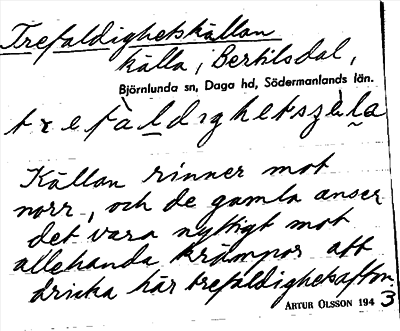 Trefaldighetskällan
källa, i Bertilsdal,
Björnlunda sn, Daga hd, Södermanlands län.
trefàldıghetsȥɛ̀la
Källan rinner mot
norr, och de gamla anser
det vara nyttigt mot
allehanda krämpor att
dricka här trefaldighetsafton.
ARTUR OLSSON 1943